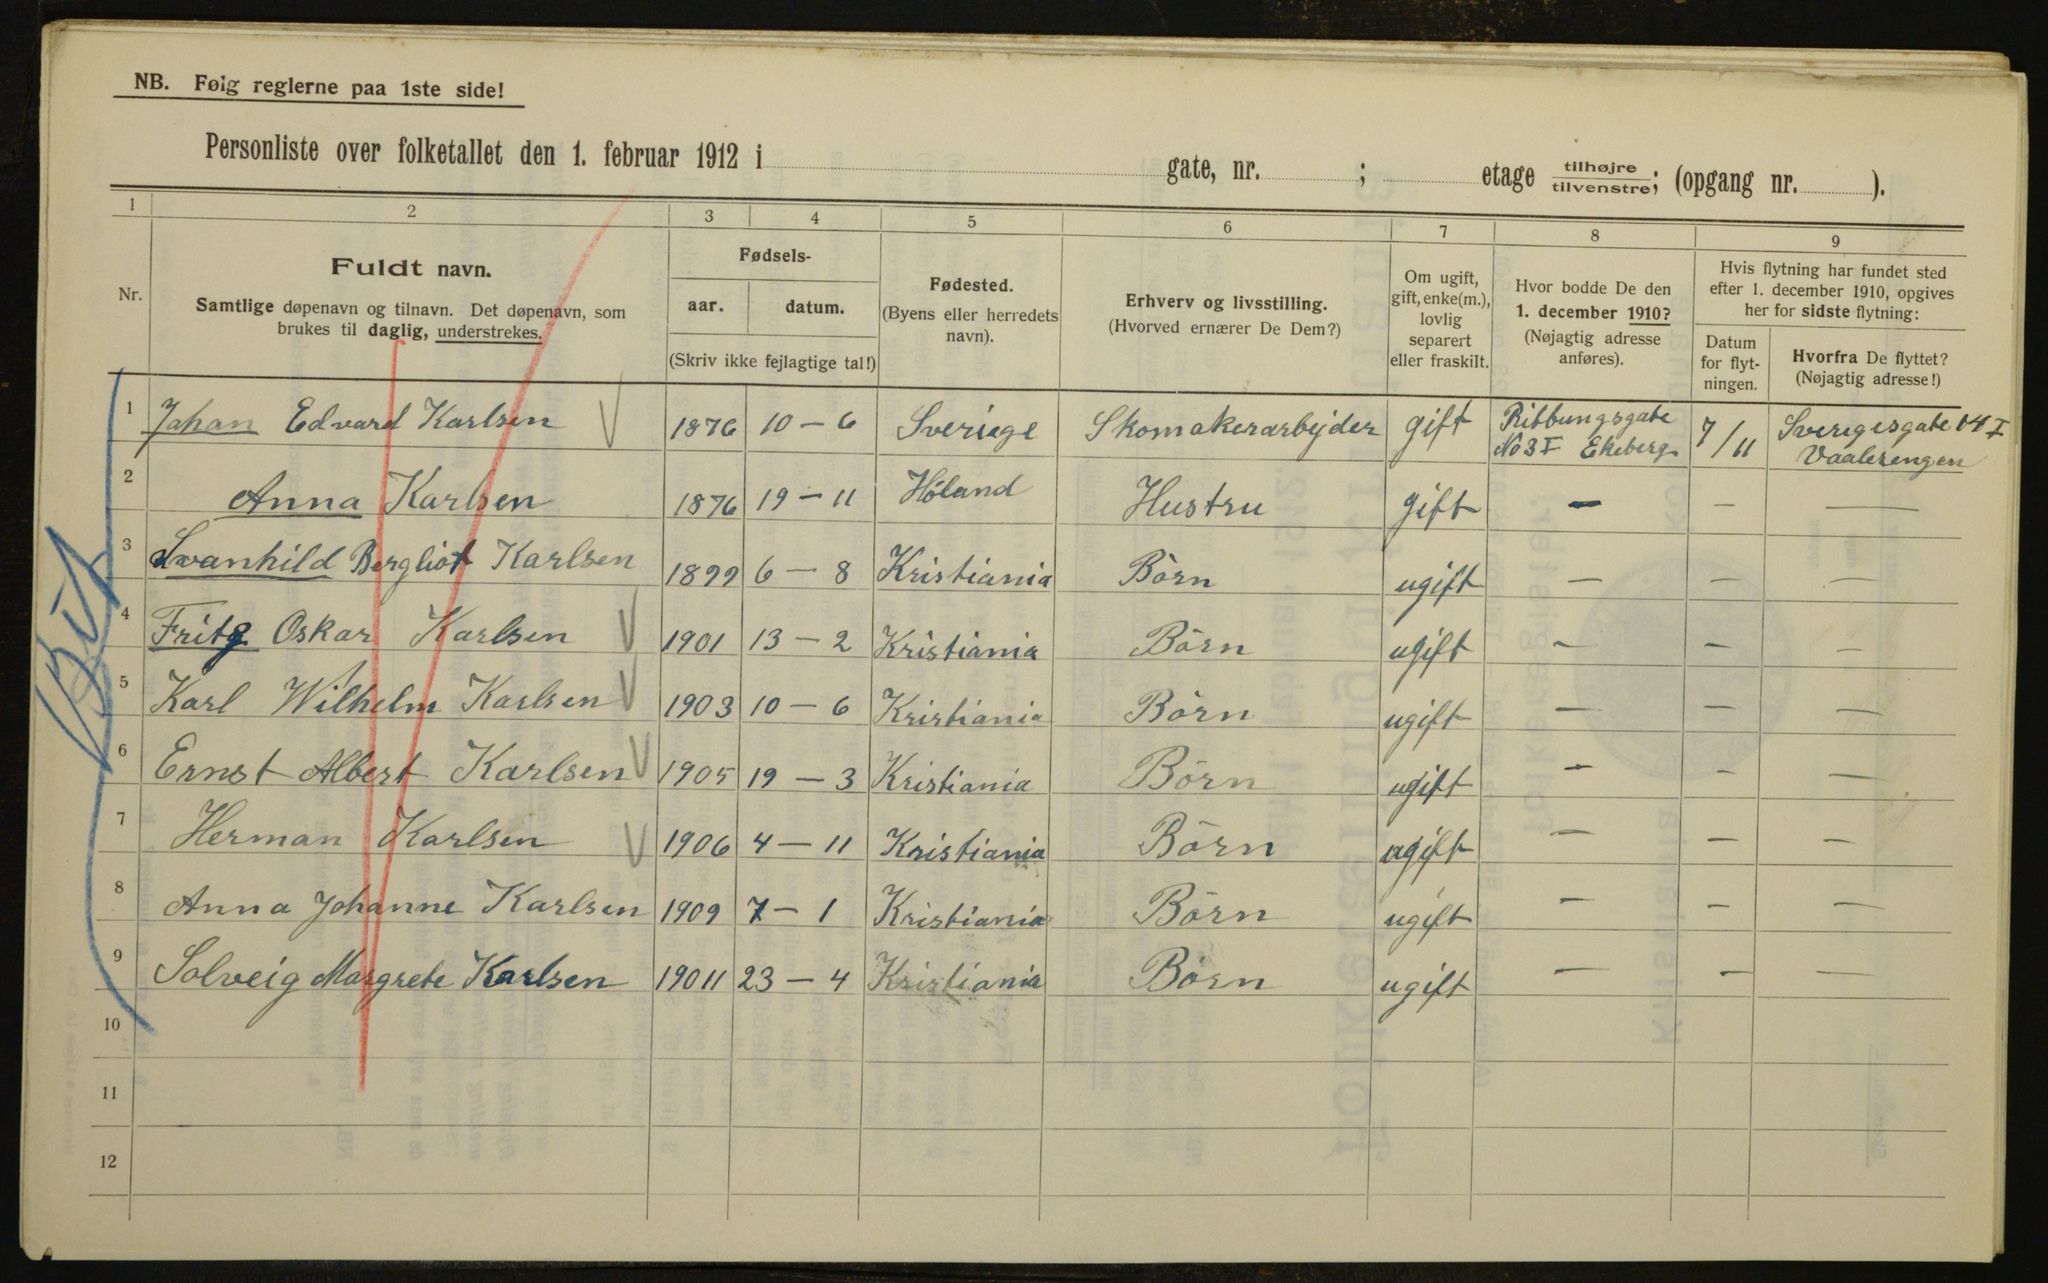 NB. Følg reglerne paa 1ste side!
Personliste over folketallet den 1. februar 1912 i gate, nr. ; etage tilhøjre tilvenstre; (opgang nr. ).
1 2 3 4 5 6 7 8 9
Nr.
Fuldt navn.
Samtlige døpenavn og tilnavn. Det døpenavn, som
brukes til daglig, understrekes.
Fødsels-
aar. datum.
(Skriv ikke fejlagtige tal!)
Fødested.
(Byens eller herredets
navn).
Erhverv og livsstilling.
(Hvorved ernærer De Dem?)
Om ugift,
gift, enke(m.),
lovlig
separert
eller fraskilt.
Hvor bodde De den
1. december 1910?
(Nøjagtig adresse
anføres).
Hvis flytning har fundet sted
efter 1. december 1910, opgives
her for sidste flytning:
Datum
for flyt-
ningen.
Hvorfra De flyttet?
(Nøjagtig adresse!)
1 Johan Edvard Karlsen 1876 10 – 6 Sverige Skomakerarbejder gift Ribbungsgate No 3 I Ekeberg 7/11 Sverigesgate 14 I Vaalerengen
2 Anna Karlsen 1876 19 – 11 Höland Hustru gift – – –
3 Svanhild Bergliot Karlsen 1899 6 – 8 Kristiania Börn ugift – – –
4 Fritz Oskar Karlsen 1901 13 – 2 Kristiania Börn ugift – – –
5 Karl Wilhelm Karlsen 1903 10 – 6 Kristiania Börn ugift – – –
6 Ernst Albert Karlsen 1905 19 – 3 Kristiania Börn ugift – – –
7 Herman Karlsen 1906 4 – 11 Kristiania Börn ugift – – –
8 Anna Johanne Karlsen 1909 7 – 1 Kristiania Börn ugift – – –
9 Solveig Margrete Karlsen 19011 23 – 4 Kristiania Börn ugift – – –
10
11
12